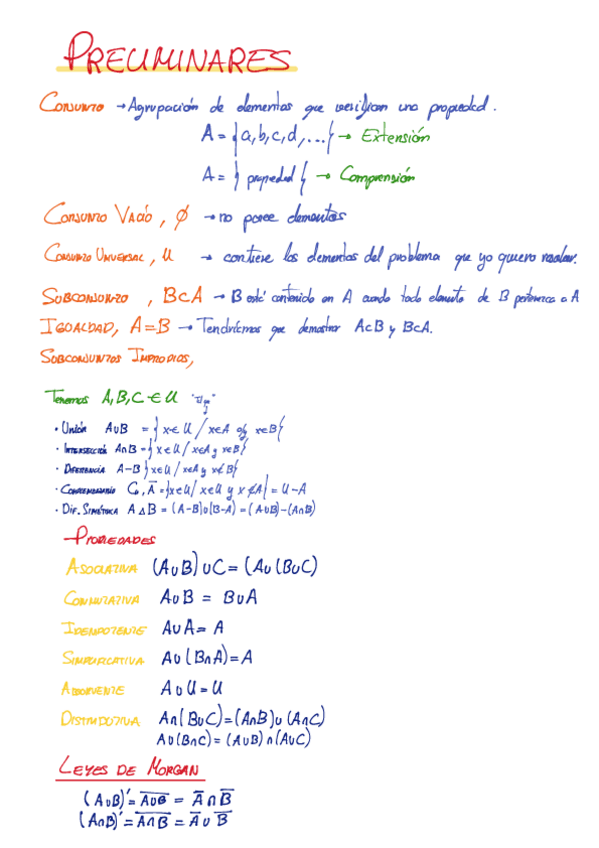 PRELIMINARES
CONJUNTO → Agrupación de elementos que verifican una propiedad.
A = {a, b, c, d, ...} → Extensión
A = { propiedad } → Comprensión
CONJUNTO VACÍO, ∅ → no posee elementos
CONJUNTO UNIVERSAL, U → contiene los elementos del problema que yo quiero resolver.
SUBCONJUNTO, B⊂A → B está contenido en A cuando todo elemento de B pertenezca a A
IGUALDAD, A=B → Tendríamos que demostrar A⊂B y B⊂A.
SUBCONJUNTOS IMPROPIOS,
Tenemos A, B, C ∈ U
· UNIÓN A∪B = { x∈U / x∈A o/y x∈B}
· INTERSECCIÓN A∩B = { x∈U / x∈A y x∈B}
· DIFERENCIA A-B } x∈U / x∈A y x∉B}
· COMPLEMENTARIO C, Ā = {x∈U / x∈U y x∉A} = U-A
· DIF. SIMÉTRICA A△B = (A-B)∪(B-A) = (A∪B)-(A∩B)
PROPIEDADES
ASOCIATIVA (A∪B)∪C = (A∪(B∪C)
CONMUTATIVA A∪B = B∪A
IDEMPOTENTE A∪A = A
SIMPLIFICATIVA A∪(B∩A) = A
ABSORVENTE A∪U = U
DISTRIBUTIVA A∩(B∪C) = (A∩B)∪(A∩C)
A∪(B∩C) = (A∪B)∩(A∪C)
LEYES DE MORGAN
(A∪B)' = A̅∪̅B̅ = A̅ ∩ B̅
(A∩B)' = A̅∩̅B̅ = A̅ ∪ B̅